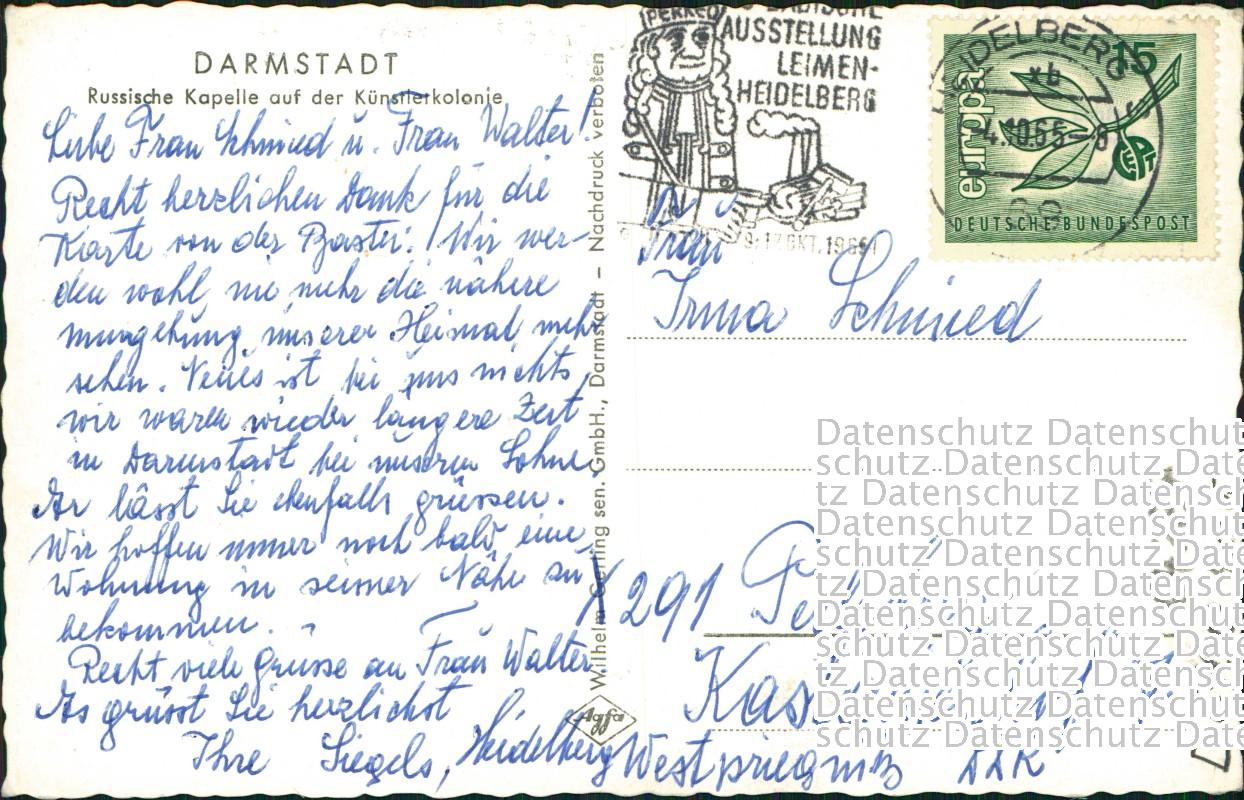 DARMSTADT
Russische Kapelle auf der Künstlerkolonie
Liebe Frau Schmied u. Frau Walter!
Recht herzlichen Dank für die
Karte von der Bastei! Wir wer-
den wohl nie mehr die nähere
Umgebung unserer Heimat mehr
sehen. Neues ist bei uns nichts,
wir waren wieder längere Zeit
in Darmstadt bei unserm Sohne.
Er lässt Sie ebenfalls grüssen.
Wir hoffen immer noch bald eine
Wohnung in seiner Nähe zu
bekommen.
Recht viele Grüsse an Frau Walter.
Es grüsst Sie herzlichst
Ihre Siegels, Heidelberg
Wilhelm Gerling sen. GmbH., Darmstadt – Nachdruck verboten
Agfa
PERKEO
AUSSTELLUNG
LEIMEN-
HEIDELBERG
9.-17.OKT.1965
HEIDELBERG
xb
-4.10.65-8
europa
15
CEPT
DEUTSCHE BUNDESPOST
Frau
Irma Schmied
291
Westpriegnitz DDR
Datenschutz Datenschut
schutz Datenschutz Date
tz Datenschutz Datensch
Datenschutz Datenschut
schutz Datenschutz Date
tz Datenschutz Datensch
Datenschutz Datenschut
schutz Datenschutz Date
tz Datenschutz Datensch
Datenschutz Datenschut
schutz Datenschutz Date